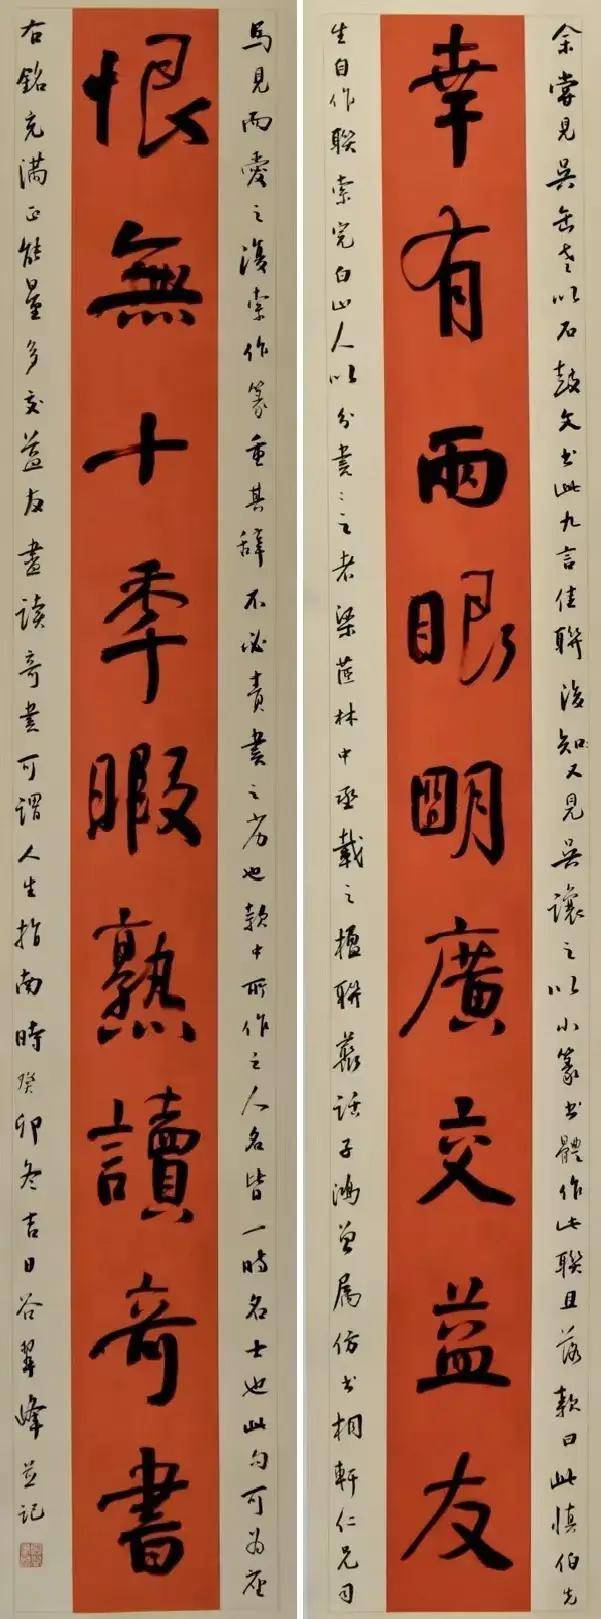 幸有兩眼明廣交益友
恨無十年暇熟讀奇書
余嘗見吳缶老以石鼓文書此九言佳聯後知又見吳讓之以小篆書體作此聯且落款曰此慎伯先
生自作聯索完白山人以分書書之者梁茝林中丞載之楹聯叢話子鴻曾屬仿書相軒仁兄司
馬見而愛之復索作篆重其辭不必責書之劣也款中所作之人名皆一時名士也此句可為座
右銘充滿正能量多交益友盡讀奇書可謂人生指南時癸卯冬吉日谷翠峰並記